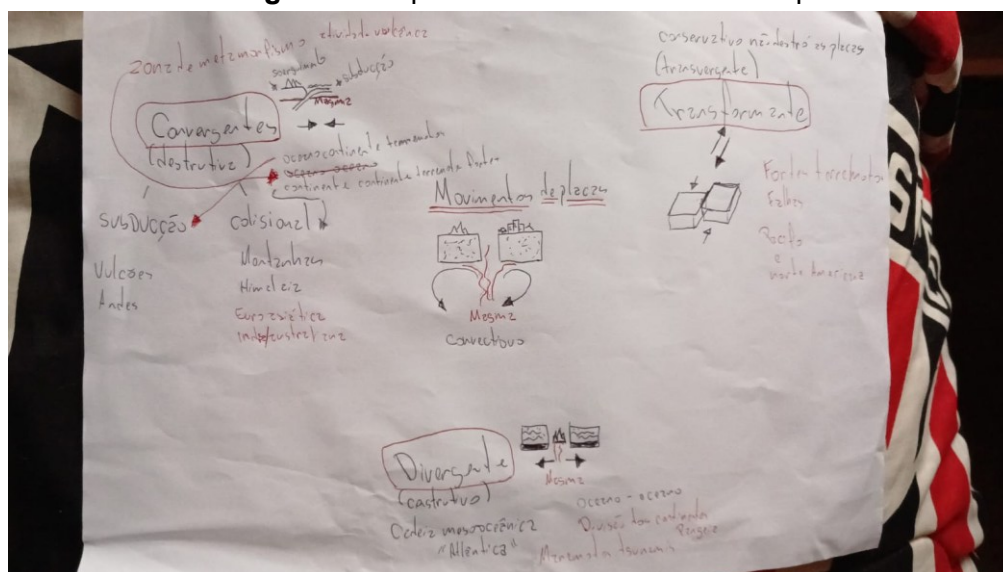 zona de metamorfismo atividade vulcânica
soerguimento
subducção
Magma
Convergentes
(destrutiva)
oceano continente terremotos
oceano oceano
e continente continente terremoto
SUBDUCÇÃO
Vulcões
Andes
colisional
Montanhas
Himalaia
Euroasiática
indo/australiana
Movimentos de placas
Magma
Convectivo
conservativo não destrói as placas
(transvergente)
Transformante
Fortes terremotos
Falhas
Pacífo
e
norte Americana
Divergente
(castrutivo)
Magma
Cadeia mesooceânica
"Atlântica"
oceano - oceano
Divisão dos continentes
Pangeia
Maremotos tsunamis